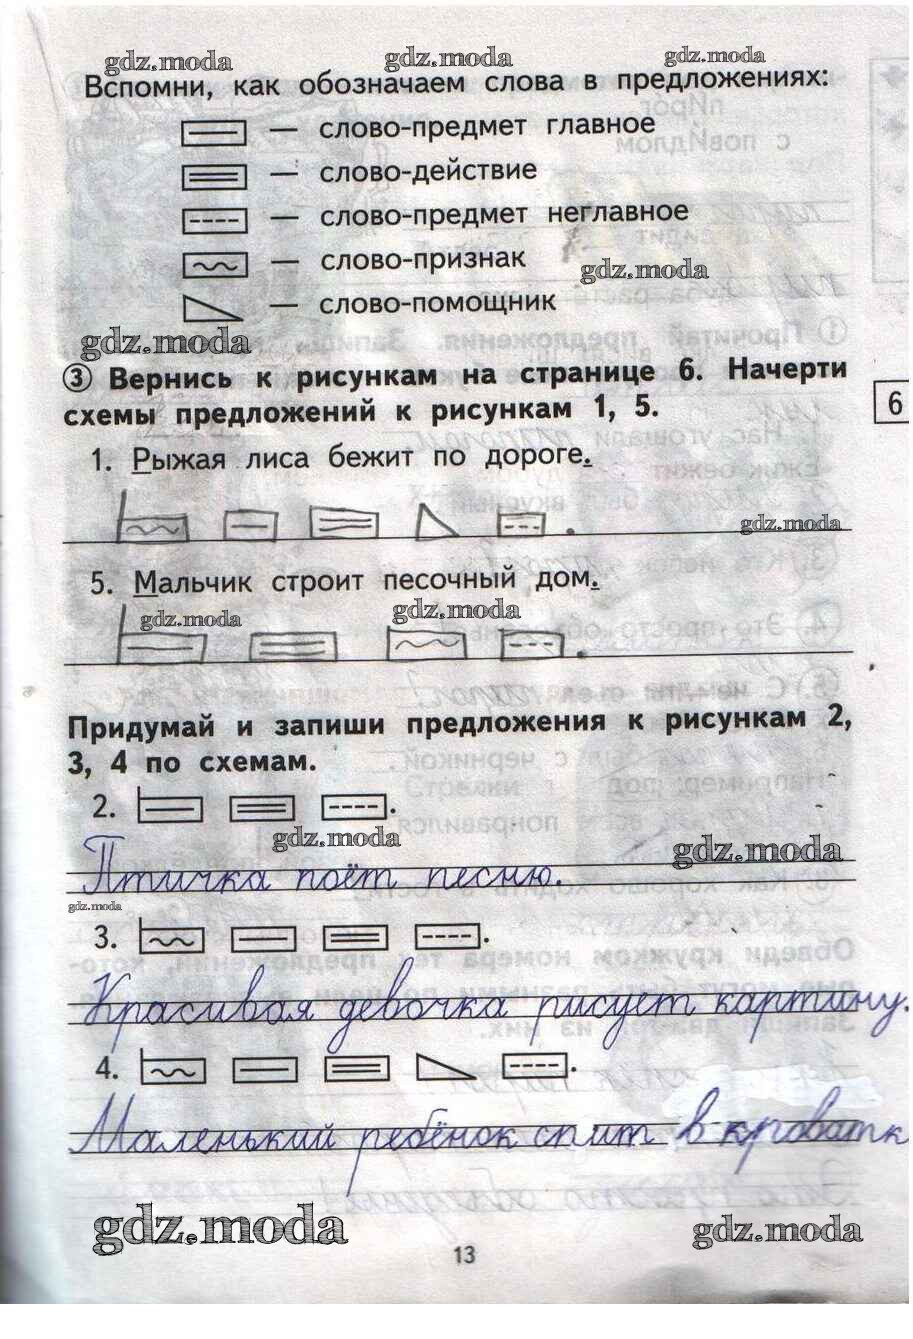 gdz.moda gdz.moda gdz.moda
Вспомни, как обозначаем слова в предложениях:
— слово-предмет главное
— слово-действие
— слово-предмет неглавное
— слово-признак
gdz.moda
— слово-помощник
gdz.moda
③ Вернись к рисункам на странице 6. Начерти
схемы предложений к рисункам 1, 5.
6
1. Рыжая лиса бежит по дороге.
gdz.moda
5. Мальчик строит песочный дом.
gdz.moda gdz.moda
Придумай и запиши предложения к рисункам 2,
3, 4 по схемам.
2.
gdz.moda gdz.moda
Птичка поёт песню.
gdz.moda
3.
Красивая девочка рисует картину.
4.
Маленький ребёнок спит в кроватк
gdz.moda gdz.moda
13